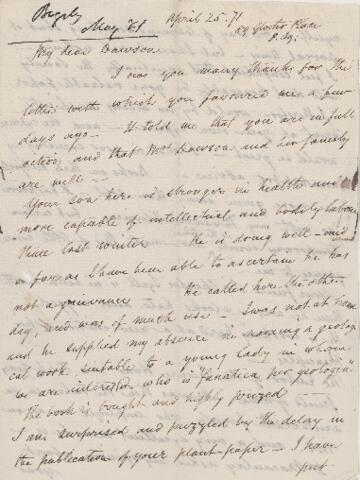 Bigsby April 25. 71
May 61 89 Gloster Place
P. Sq.
My dear Dawson
I owe you many thanks for the
letter with which you favoured me a few
days ago — It told me that you are in full
action and that Mrs Dawson and her family
are well —
Your son here is stronger in health and
more capable of intellectual and bodily labour
than last winter He is doing well — and
as far as I have been able to ascertain he has
not a grievance He called here the other
day, and was of much use — I was not at home
and he supplied my absence in naming a geologi
cal work suitable to a young lady in whom
we are interested who is "fanatica per geologia"
The book is bought and highly prized —
I am surprised and puzzled by the delay in
the publication of your plant-paper — I have
put